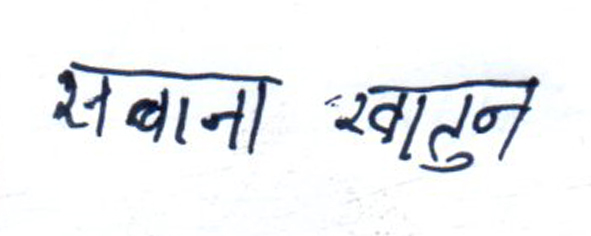 सबाना खातुन